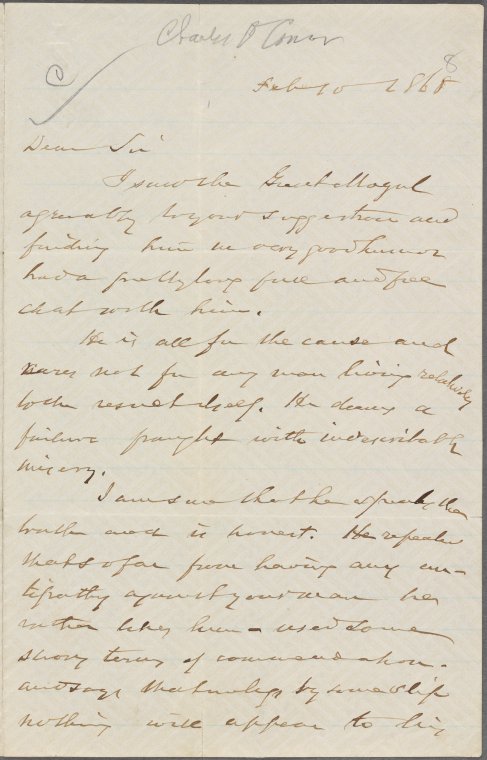 Charles O'Conor
8
Feb 10 1868
Dear Sir
I saw the Great Mogul
agreeably to your suggestion and
finding him in very good humor
had a pretty long full and free
chat with him.
He is all for the cause and
cares not for any man living relatively
to the result itself. He deems a
failure fraught with indescribable
misery.
I am sure that he speaks the
truth and is honest. He repeated
that so far from having any an-
tipathy against your man he
rather likes him - used some
strong terms of commendation.
and says that unless by some slip
nothing will appear to his